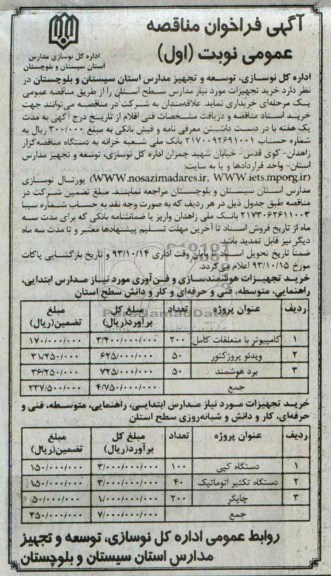 آگهی فراخوان مناقصه
عمومی نوبت (اول)
اداره کل نوسازی مدارس
استان سیستان و بلوچستان
اداره کل نوسازی، توسعه و تجهیز مدارس استان سیستان و بلوچستان در
نظر دارد خرید تجهیزات مورد نیاز مدارس سطح استان را از طریق مناقصه عمومی
یک مرحله‌ای خریداری نماید. علاقمندان به شرکت در مناقصه می‌توانند جهت
خرید اسناد مناقصه و دریافت مشخصات فنی اقلام از تاریخ درج آگهی به مدت
یک هفته با در دست داشتن معرفی نامه و فیش بانکی به مبلغ ۳۰۰/۰۰۰ ریال به
شماره حساب ۲۱۷۰۰۹۲۶۹۱۰۰۱ بانک ملی شعبه خزانه به دستگاه مناقصه‌گزار
زاهدان- کوی قدس- خیابان شهید چمران اداره کل نوسازی، توسعه و تجهیز مدارس
استان- واحد قراردادها و یا به سایت:
(WWW.nosazimadares.ir، WWW.iets.mporg.ir) پورتال نوسازی
مدارس استان سیستان و بلوچستان مراجعه نمایند. مبلغ تضمین شرکت در
مناقصه طبق جدول ذیل در هر ردیف که به صورت وجه نقد به حساب شماره سیبا
۲۱۷۳۰۶۲۶۱۱۰۰۳ بانک ملی زاهدان واریز یا ضمانتنامه بانکی که برای مدت سه
ماه از تاریخ فروش اسناد تا آخرین مهلت تسلیم پیشنهادها معتبر و تا مدت سه ماه
دیگر نیز قابل تمدید باشد.
ضمنا تاریخ تحویل اسناد تا پایان وقت اداری ۹۳/۱۰/۱۴ و تاریخ بازگشایی پاکات
مورخ ۹۳/۱۰/۱۵ اعلام می‌گردد.
خرید تجهیزات هوشمندسازی و فن‌آوری مورد نیاز مدارس ابتدایی،
راهنمایی، متوسطه، فنی و حرفه‌ای و کار و دانش سطح استان
ردیف عنوان پروژه تعداد مبلغ کل برآورد(ریال) مبلغ تضمین(ریال)
۱ کامپیوتر با متعلقات کامل ۲۰۰ ۳/۴۰۰/۰۰۰/۰۰۰ ۱۷۰/۰۰۰/۰۰۰
۲ ویدئو پروژکتور ۵۰ ۶۲۵/۰۰۰/۰۰۰ ۳۱/۲۵۰/۰۰۰
۳ برد هوشمند ۵۰ ۷۲۵/۰۰۰/۰۰۰ ۳۶/۲۵۰/۰۰۰
جمع ۴/۷۵۰/۰۰۰/۰۰۰ ۲۳۷/۵۰۰/۰۰۰
خرید تجهیزات مورد نیاز مدارس ابتدایی، راهنمایی، متوسطه، فنی و
حرفه‌ای، کار و دانش و شبانه‌روزی سطح استان
ردیف عنوان پروژه تعداد مبلغ کل برآورد(ریال) مبلغ تضمین(ریال)
۱ دستگاه کپی ۱۰۰ ۳/۰۰۰/۰۰۰/۰۰۰ ۱۵۰/۰۰۰/۰۰۰
۲ دستگاه تکثیر اتوماتیک ۴۰ ۳/۰۰۰/۰۰۰/۰۰۰ ۱۵۰/۰۰۰/۰۰۰
۳ چاپگر ۲۰۰ ۱/۰۰۰/۰۰۰/۰۰۰ ۵۰/۰۰۰/۰۰۰
جمع ۷/۰۰۰/۰۰۰/۰۰۰ ۳۵۰/۰۰۰/۰۰۰
روابط عمومی اداره کل نوسازی، توسعه و تجهیز
مدارس استان سیستان و بلوچستان